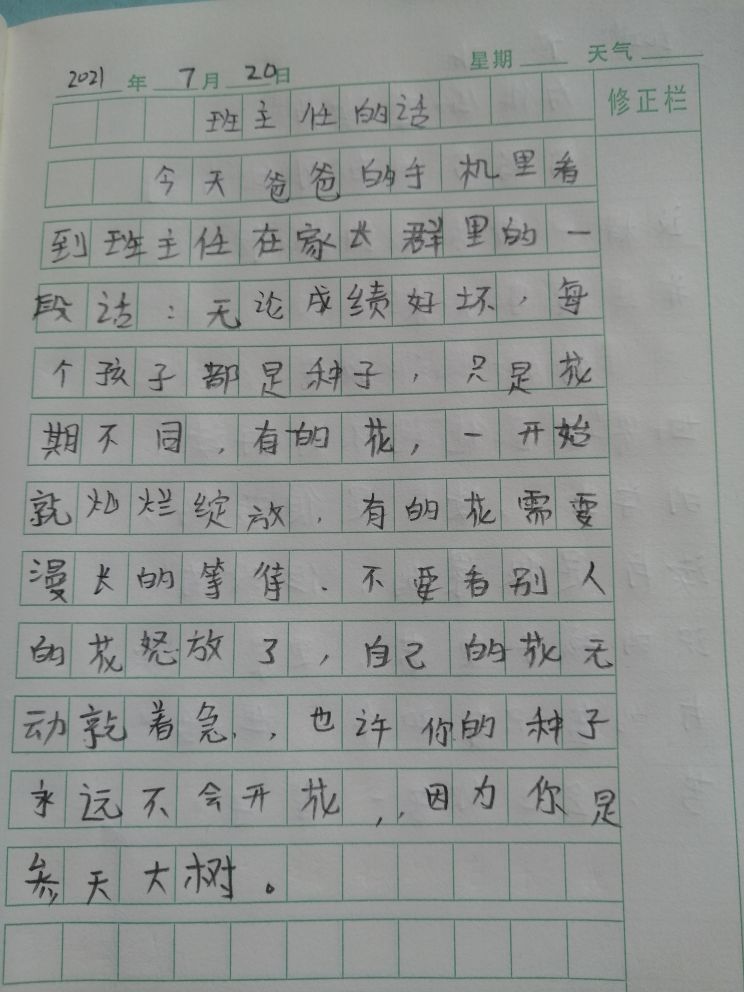 2021年 7月 20日 星期 天气
班主任的话
修正栏
今天爸爸的手机里看
到班主任在家长群里的一
段话：无论成绩好坏，每
个孩子都是种子，只是花
期不同，有的花，一开始
就灿烂绽放，有的花需要
漫长的等待．不要看别人
的花怒放了，自己的花无
动就着急，，也许你的种子
永远不会开花，，因为你是
参天大树。